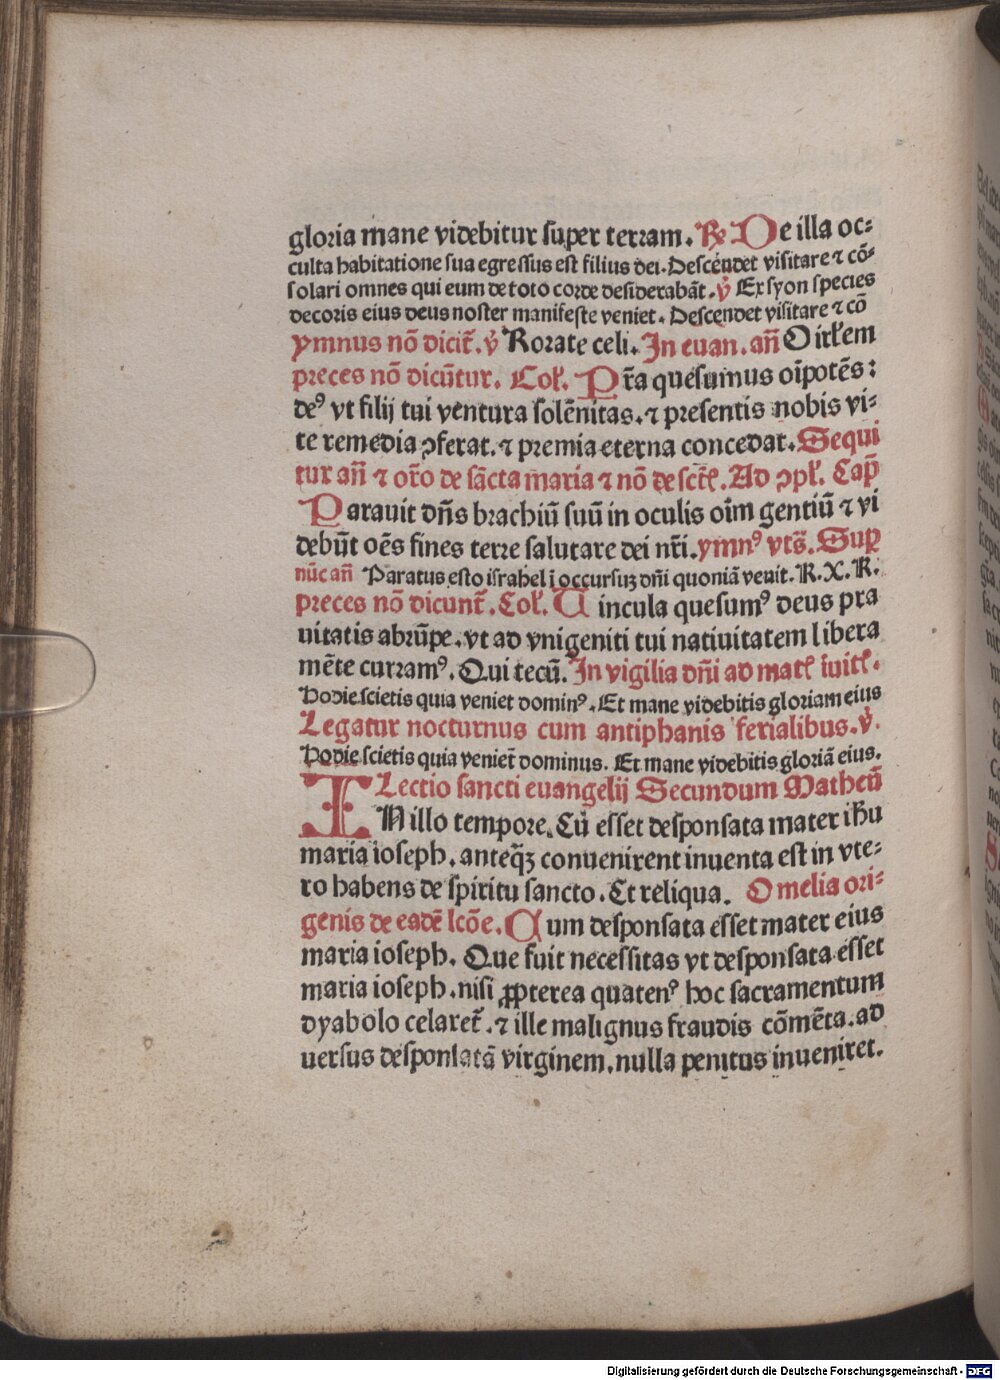 gloria mane videbitur super terram. ℟ De illa oc⸗
culta habitatione sua egressus est filius dei. Descendet visitare ⁊ cō⸗
solari omnes qui eum de toto corde desiderabāt. ℣ Ex syon species
decoris eius deus noster manifeste veniet. Descendet visitare ⁊ cō
ymnus nō dicit̄. ℣ Rorate celi. In euan. an̄ O irl̄em
preces nō dicūtur. Col̄. Pr̄a quesumus oīpotēs:
deꝰ vt filij tui ventura solēnitas. ⁊ presentis nobis vi⸗
te remedia ꝯferat. ⁊ premia eterna concedat. Sequi
tur an̄ ⁊ or̄o de sācta maria ⁊ nō de sctīs. Ad ꝯpl̄. Cap̄
Parauit dn̄s brachiū suū in oculis oīm gentiū ⁊ vi
debūt oēs fines terre salutare dei nr̄i. ymnꝰ vts̄. Sup̄
nūc an̄ Paratus esto israhel ī occursuꝫ dn̄i quoniā venit. R. X. R.
preces nō dicunt̄. Col̄. Uincula quesumꝰ deus pra
uitatis abrūpe. vt ad vnigeniti tui natiuitatem libera
mēte curramꝰ. Qui tecū. In vigilia dn̄i ad mat̄ īuit̄.
Hodie scietis quia veniet dominꝰ. Et mane videbitis gloriam eius
Legatur nocturnus cum antiphanis ferialibus. ℣.
Hodie scietis quia veniet̄ dominus. Et mane videbitis gloriā eius.
Lectio sancti euangelij Secundum Matheū
IN illo tempore. Cū esset desponsata mater ih̄u
maria ioseph. anteqꝫ conuenirent inuenta est in vte⸗
ro habens de spiritu sancto. Et reliqua. Omelia ori⸗
genis de eadē lcōe. Cum desponsata esset mater eius
maria ioseph. Que fuit necessitas vt desponsata esset
maria ioseph. nisi ꝓpterea quatenꝰ hoc sacramentum
dyabolo celaret̄. ⁊ ille malignus fraudis cōmēta. ad
uersus desponsatā virginem. nulla penitus inueniret.
Digitalisierung gefördert durch die Deutsche Forschungsgemeinschaft - DFG